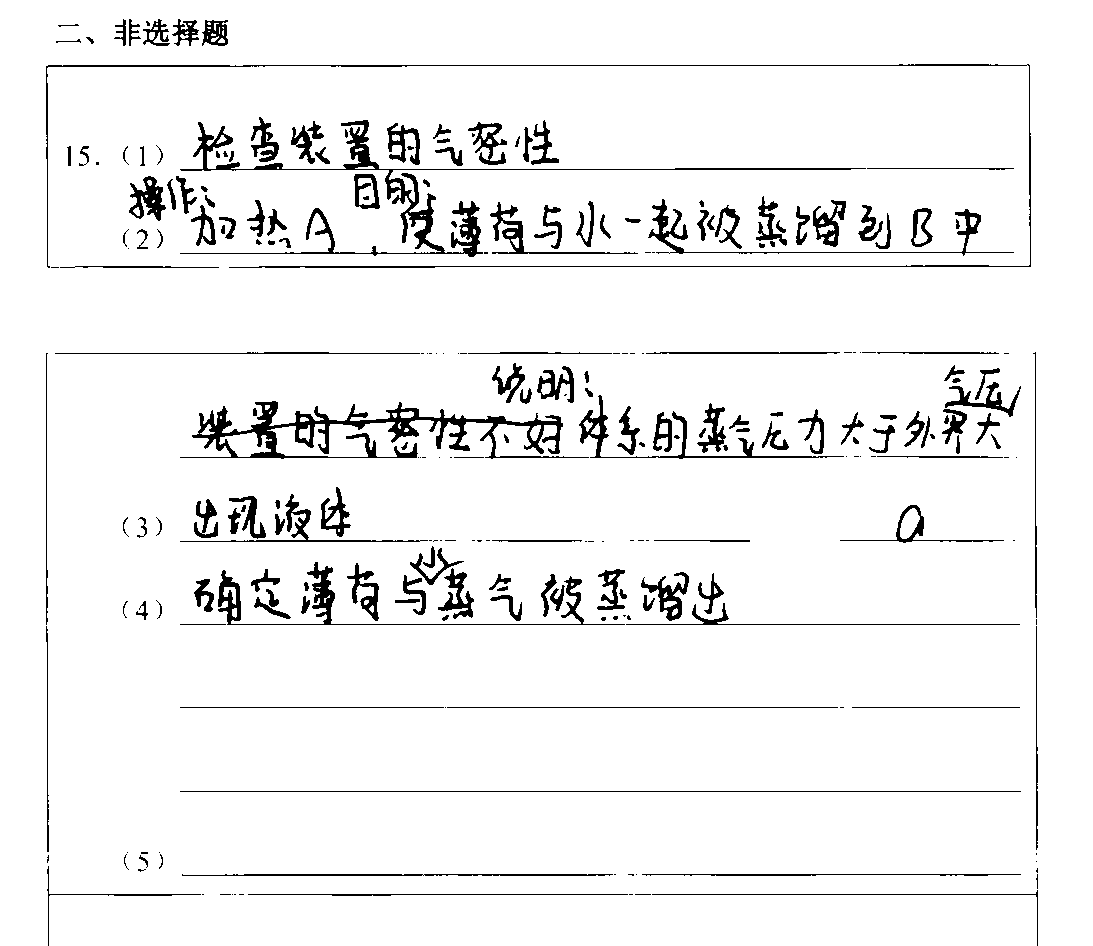 二、非选择题
15.（1）检查装置的气密性
操作： 目的：
（2）加热A，使薄荷与水一起被蒸馏到B中
说明： 气压
装置的气密性不好体系的蒸气压力大于外界大
（3）出现液体 a
水
（4）确定薄荷与蒸气被蒸馏出
（5）